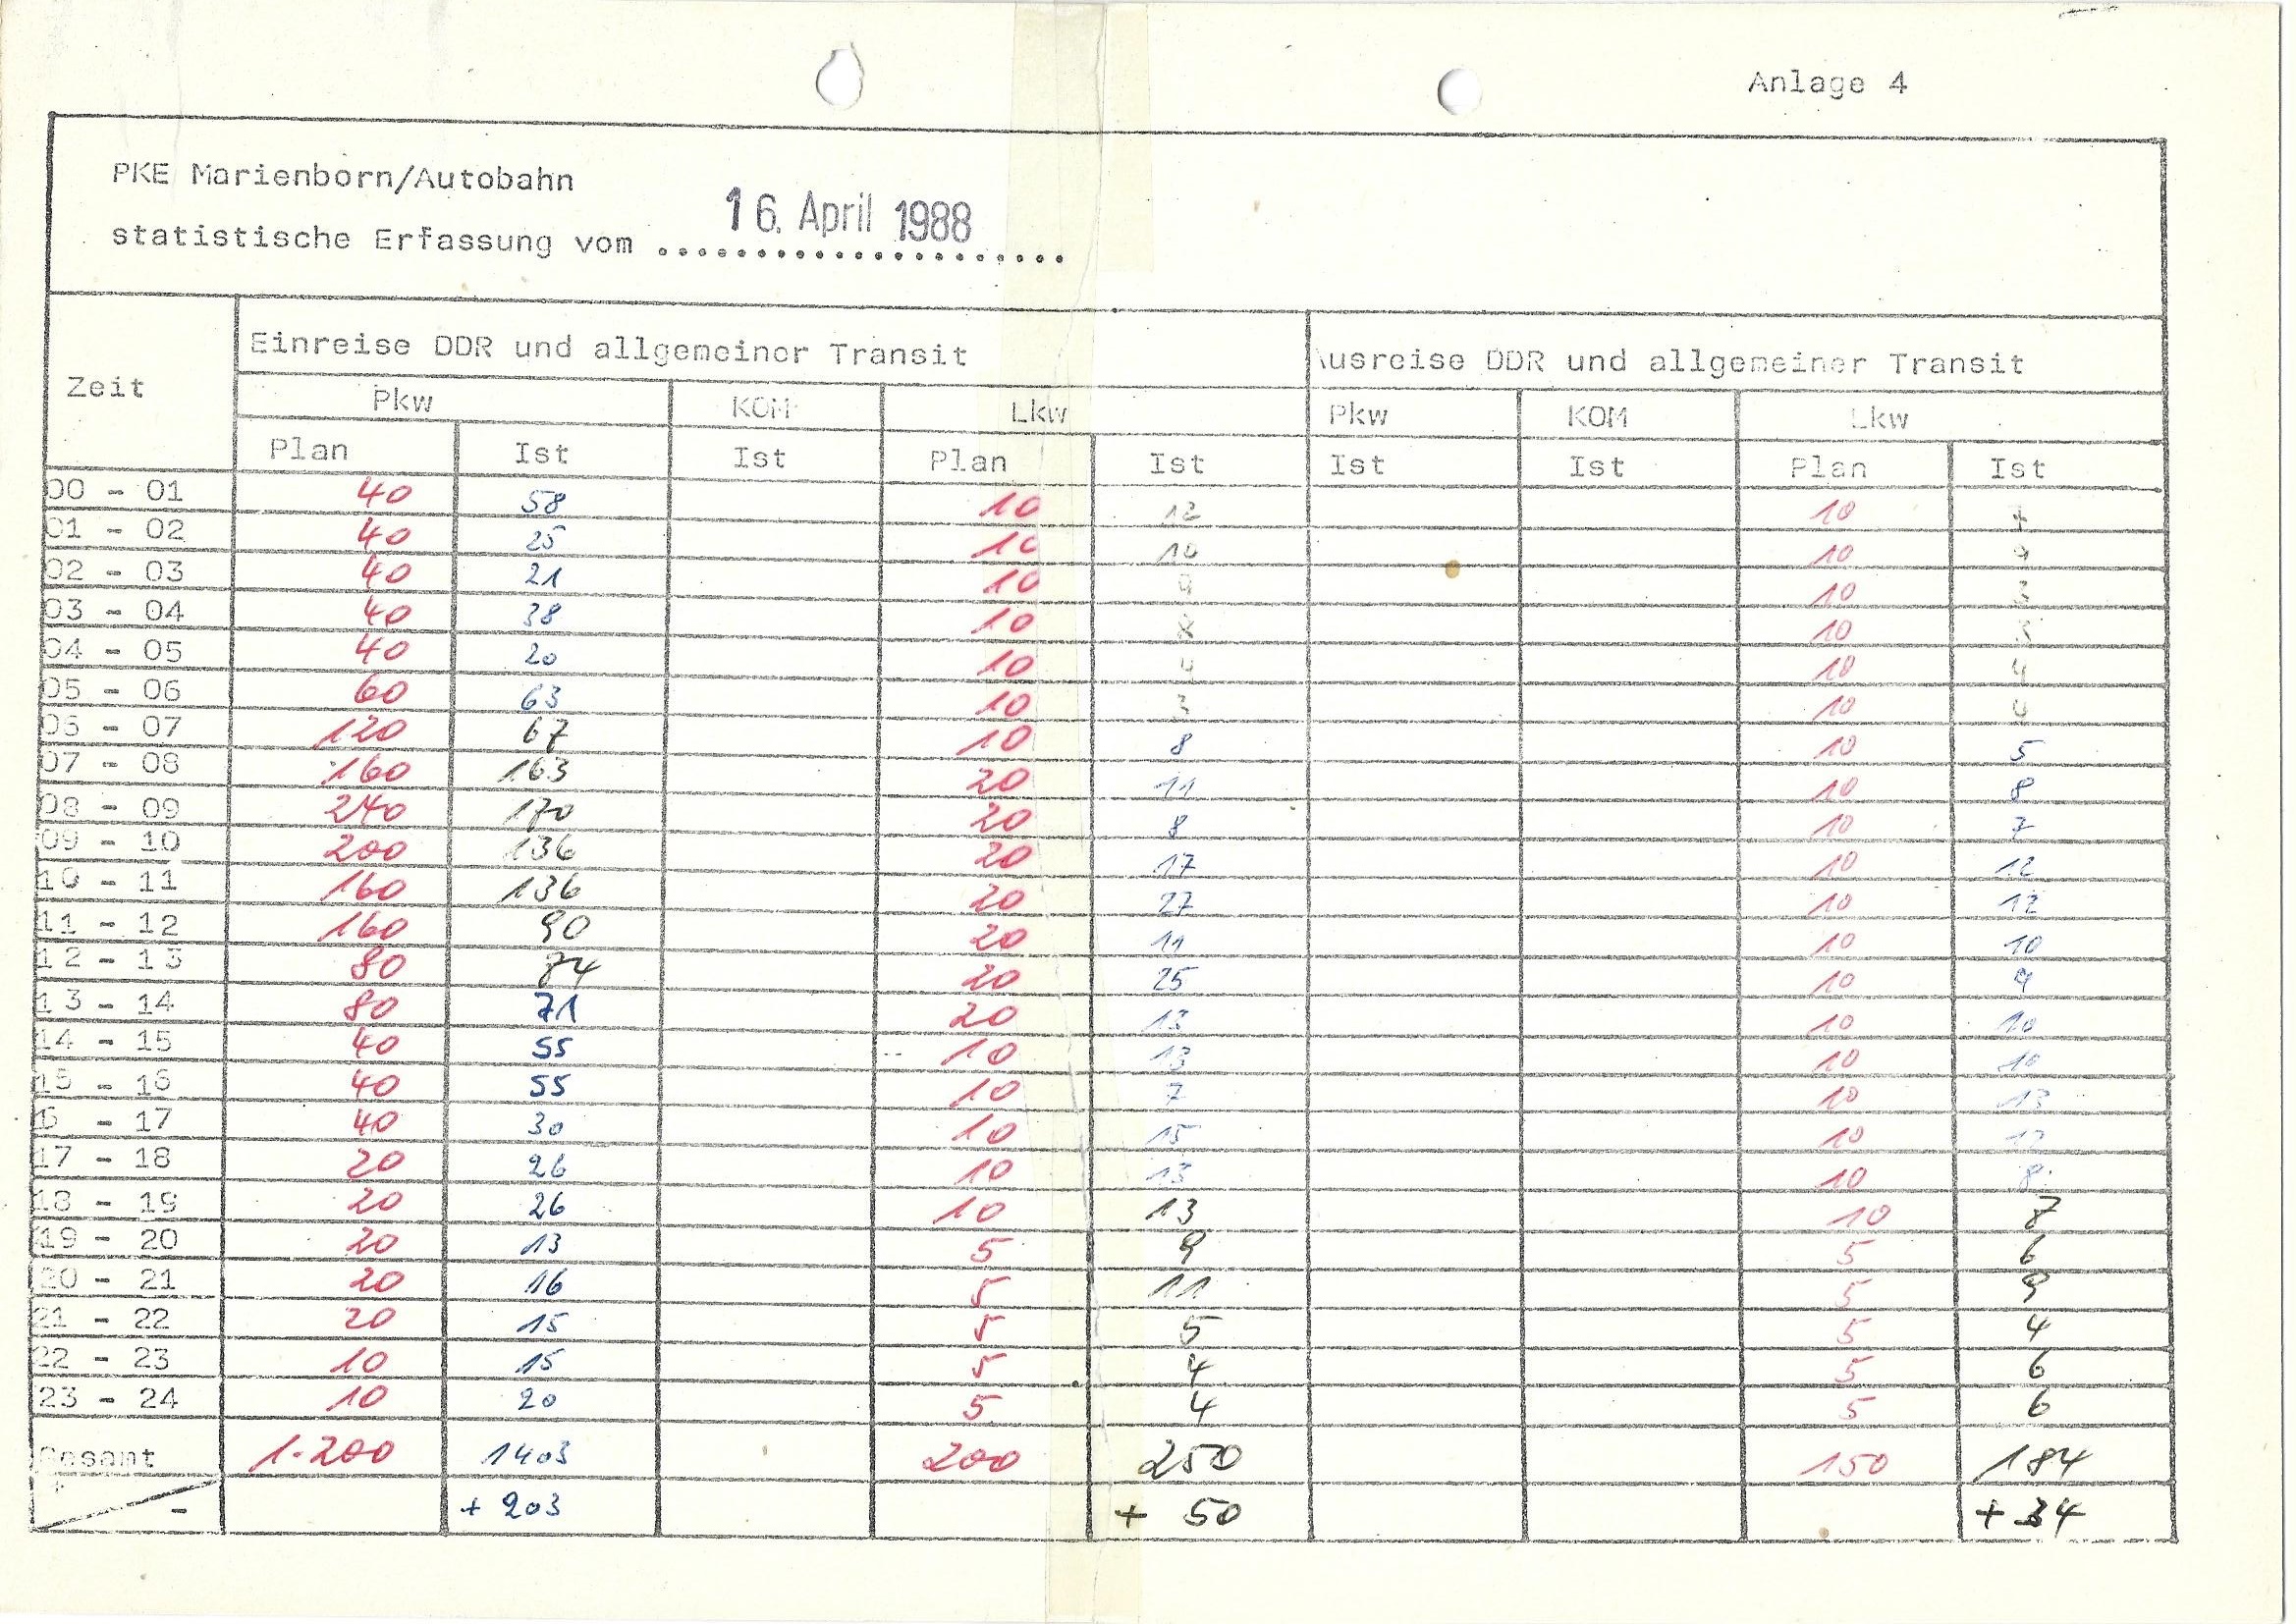 Anlage 4
PKE Marienborn/Autobahn
statistische Erfassung vom 16. April 1988
Zeit Einreise DDR und allgemeiner Transit Ausreise DDR und allgemeiner Transit
Pkw KOM Lkw Pkw KOM Lkw
Plan Ist Ist Plan Ist Ist Ist Plan Ist
00 - 01 40 58 10 12 10
01 - 02 40 25 10 10 10 9
02 - 03 40 21 10 9 10 3
03 - 04 40 38 10 10
04 - 05 40 20 10 4 10 4
05 - 06 60 63 10 3 10 4
06 - 07 120 67 10 8 10 5
07 - 08 160 163 20 11 10 8
08 - 09 240 170 20 8 10 7
09 - 10 200 136 20 17 10 12
10 - 11 160 136 20 27 10 12
11 - 12 160 90 20 11 10 10
12 - 13 80 84 20 25 10 9
13 - 14 80 71 20 13 10 10
14 - 15 40 55 10 13 10 10
15 - 16 40 55 10 7 10 13
- 17 40 30 10 15 10 12
17 - 18 20 26 10 13 10 8
18 - 19 20 26 10 13 10 8
19 - 20 20 13 5 9 5 6
20 - 21 20 16 5 11 5 9
21 - 22 20 15 5 5 5 4
22 - 23 10 15 5 4 5 6
23 - 24 10 20 5 4 5 6
Gesamt 1.200 1403 200 250 150 184
+ - + 203 + 50 + 34